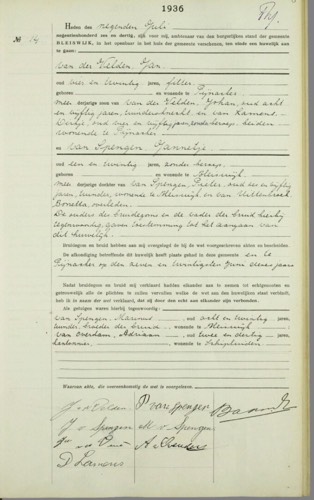 1936
Heden den negenden Juli
negentienhonderd zes en dertig, zijn voor mij, ambtenaar van den burgerlijken stand der gemeente
BLEISWIJK, in het openbaar in het huis der gemeente verschenen, ten einde een huwelijk aan
te gaan:
No. 14
van der Velden, Jan,
oud vier en twintig jaren,
geboren te Pijnacker
meerderjarige zoon van van der Velden, Johan, oud acht
en vijftig jaren, en van
oud vijf en vijftig jaren, zonder beroep, beiden
wonende te Pijnacker
en van Spengen, Jannetje,
oud een en twintig jaren, zonder beroep,
geboren te Bleiswijk
dochter van van Spengen, Pieter, oud en vijftig
jaren, tuinder, wonende te Bleiswijk en van
overleden.
De ouders des bruidegoms en de vader der bruid, hierbij
tegenwoordig, gaven toestemming tot het aangaan van
dit huwelijk.
Bruidegom en bruid hebben aan mij overgelegd de bij de wet voorgeschreven akten en bescheiden.
De afkondiging betreffende dit huwelijk heeft plaats gehad in deze gemeente en te
Pijnacker op den zeven en twintigsten Juni dezes jaars
Nadat bruidegom en bruid mij verklaard hadden elkander aan te nemen tot echtgenooten en
getrouwelijk alle de plichten te zullen vervullen welke door de wet aan den huwelijken staat verbonden zijn,
heb ik in naam der wet verklaard, dat zij door den echt aan elkander zijn verbonden.
Als getuigen waren hierbij tegenwoordig:
van Spengen, Marinus, oud acht en twintig jaren,
tuinder, broeder der bruid, wonende te Bleiswijk
van Overdam, Adriaan, oud twee en dertig jaren,
wonende te Schipluiden
Waarvan akte, die overeenkomstig de wet is voorgelezen.
J. v. d. Velden P van Spengen
J. v. Spengen M. v. Spengen